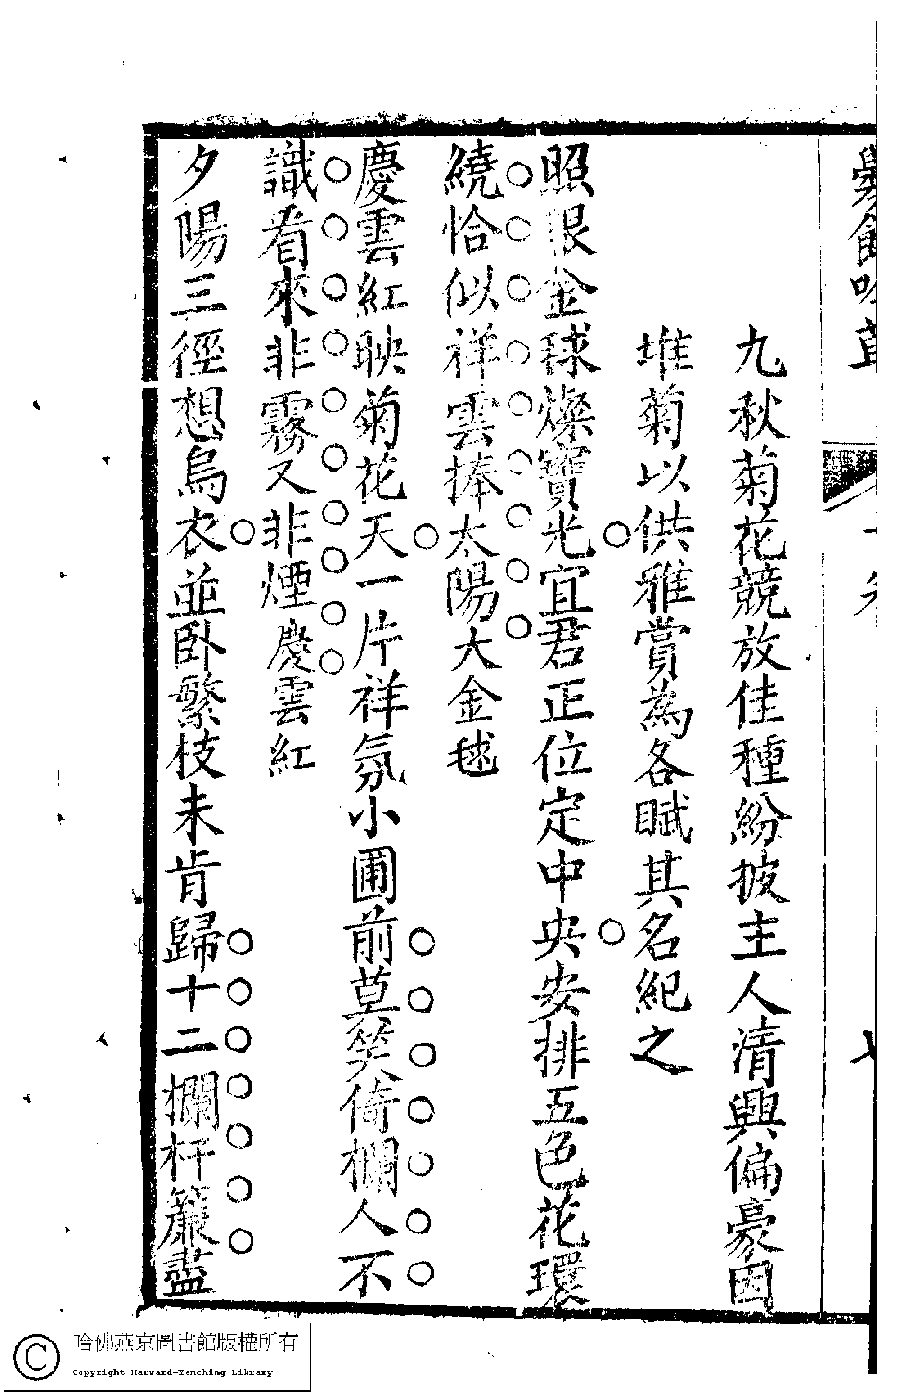 九秋菊花競放佳種紛披主人清興偏豪因
堆菊以供雅賞為各賦其名紀之
照眼金毬燦寶光宜君正位定中央安排五色花環
繞恰似祥雲捧太陽大金毬
慶雲紅映菊花天一片祥氛小圃前莫笑倚欄人不
識看來非霧又非煙慶雲紅
夕陽三徑想烏衣並臥繁枝未肯歸十二欄杆簾盡
哈佛燕京圖書館版權所有
Copyright Harvard-Yenching Library